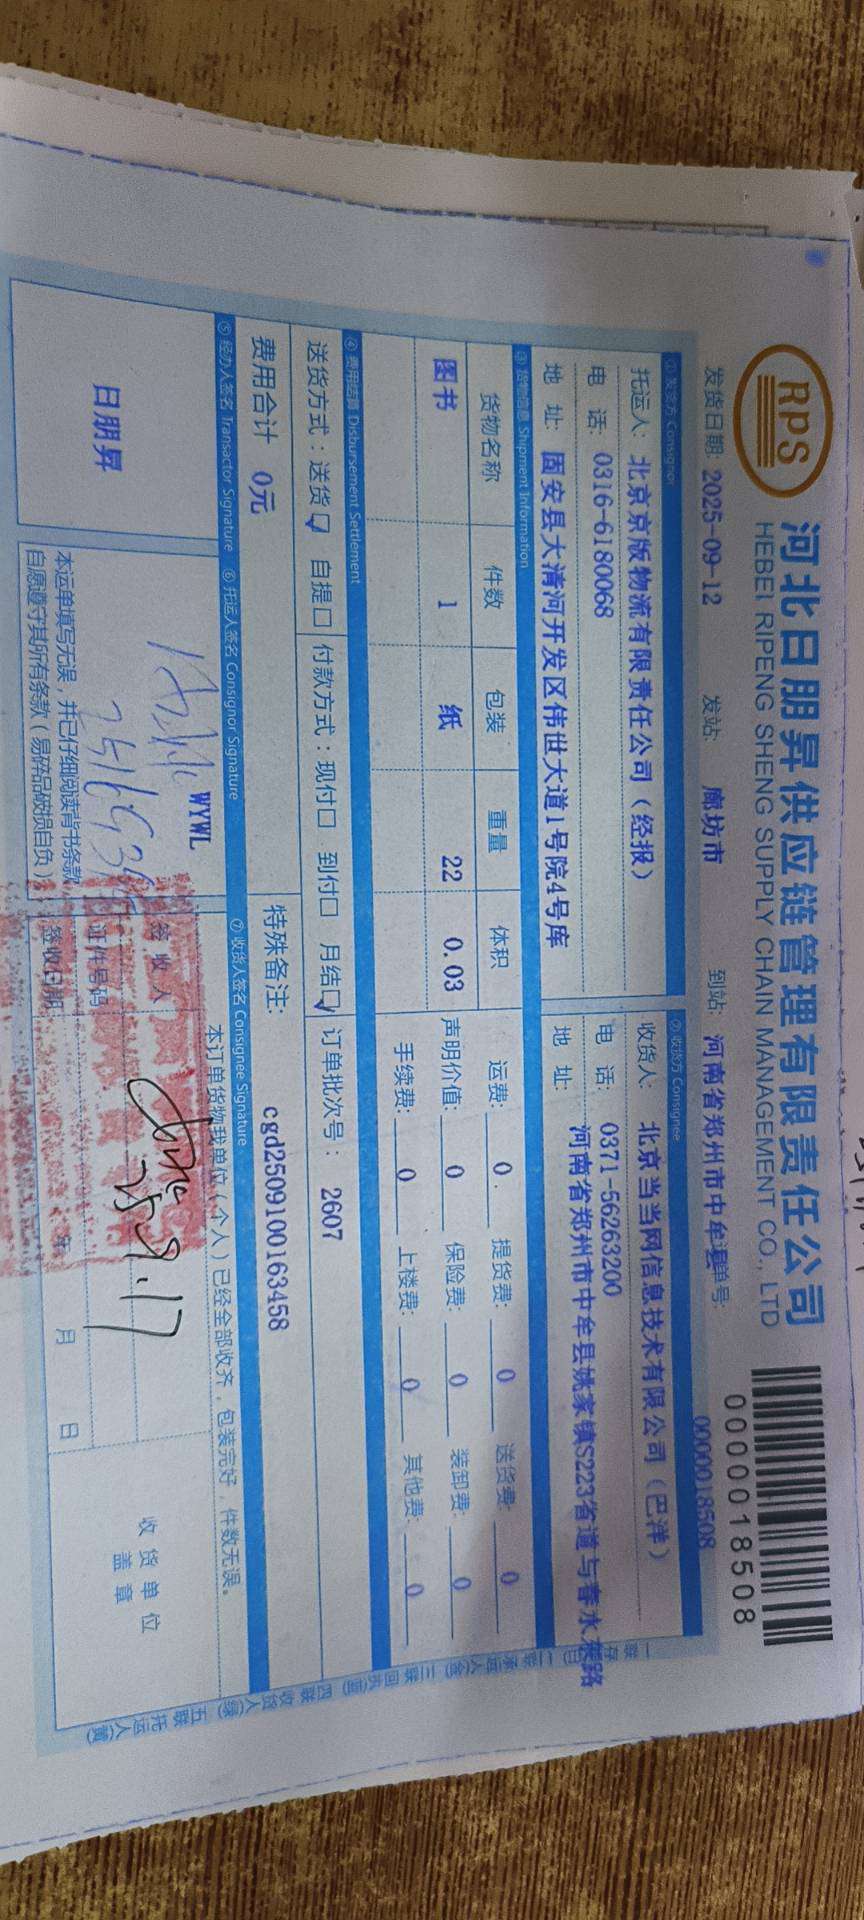 RPS
河北日朋昇供应链管理有限责任公司
HEBEI RIPENG SHENG SUPPLY CHAIN MANAGEMENT CO., LTD
0000018508
发货日期: 2025-09-12 发站: 廊坊市 到站: 河南省郑州市中牟县 单号: 0000018508
① 发货方 Consignor ② 收货方 Consignee
托运人: 北京京版物流有限责任公司（经报） 收货人: 北京当当网信息技术有限公司（巴洋）
电 话: 0316-6180068 电 话: 0371-56263200
地 址: 固安县大清河开发区伟世大道1号院4号库 地 址: 河南省郑州市中牟县姚家镇S223省道与春水东路
③ 货物信息 Shipment Information
货物名称 件数 包装 重量 体积 运费: 0. 提货费: 0 送货费: 0
图书 1 纸 22 0.03 声明价值: 0 保险费: 0 装卸费: 0
手续费: 0 上楼费: 0 其他费: 0
④ 费用结算 Disbursement Settlement
送货方式：送货☑ 自提□ 付款方式：现付□ 到付□ 月结☑ 订单批次号： 2607
费用合计 0元 特殊备注: cgd2509100163458
⑤ 经办人签名 Transactor Signature ⑥ 托运人签名 Consignor Signature ⑦ 收货人签名 Consignee Signature
日朋昇
WYWL
本运单填写无误，并已仔细阅读背书条款
自愿遵守其所有条款（易碎品破损自负）
本订单货物我单位（个人）已经全部收齐，包装完好，件数无误。
签收人
证件号码
签收日期: 年 月 日
25.9.17
收货单位
盖章
一联 存 二联 承运人(金) 三联 回执(蓝) 四联 收货人(绿) 五联 托运人(黄)